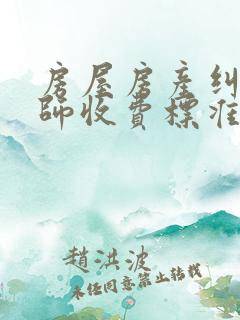 房屋房產糾
師收費標准
趙洪波
未经同意禁止转载